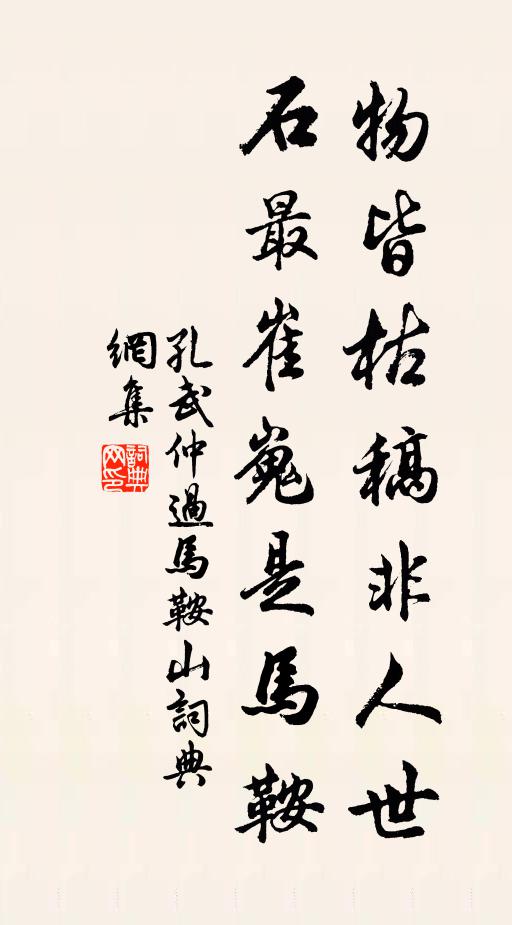 物皆枯稿非人世
石最崔嵬是馬鞍
孔武仲過馬鞍山詞典
網集
詞典
网印